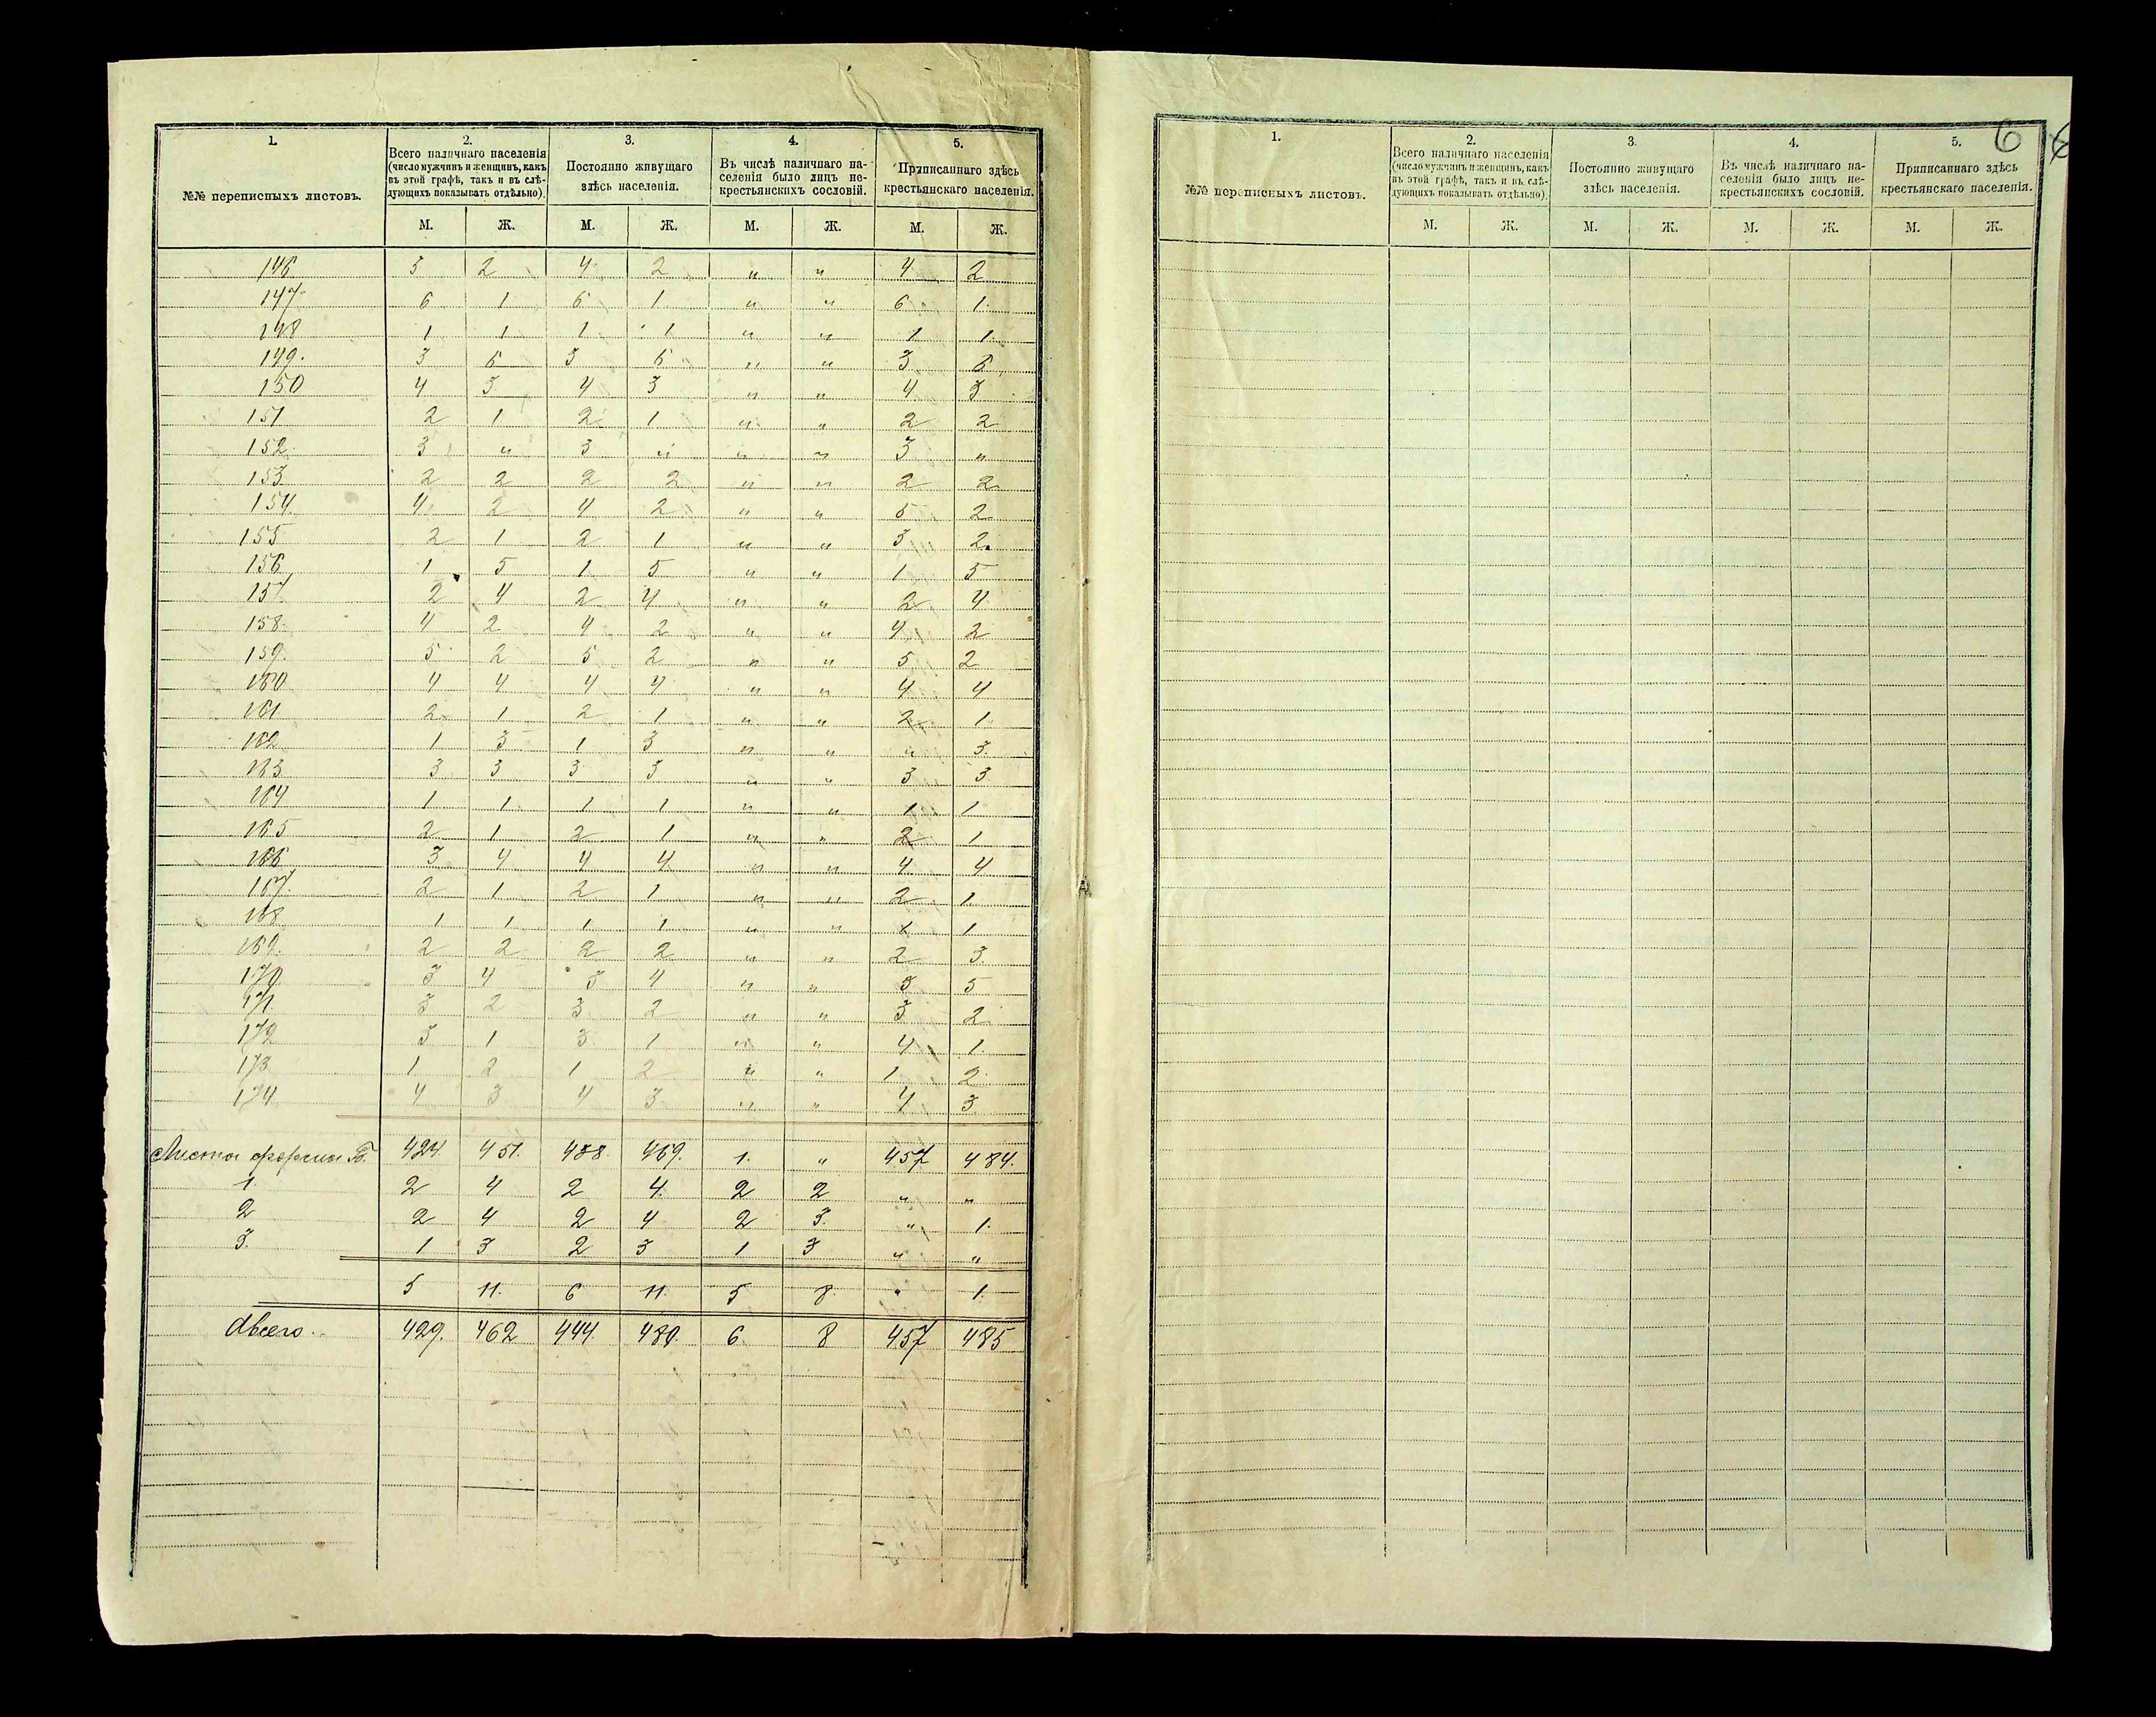 1. 2. 3. 4. 5.
№№ переписныхъ листовъ.
Всего наличнаго населенія
(число мужчинъ и женщинъ, какъ
въ этой графѣ, такъ и въ слѣ-
дующихъ показывать отдѣльно).
Постоянно живущаго
здѣсь населенія.
Въ числѣ наличнаго на-
селенія было лицъ не-
крестьянскихъ сословій.
Приписаннаго здѣсь
крестьянскаго населенія.
М. Ж. М. Ж. М. Ж. М. Ж.
146. 5 2 4 2 " " 4 2
147. 6 1 6 1 " " 6 1.
148 1 1 1 1 " " 1 1
149. 3 6 3 6 " " 3 6
150 4 3 4 3 " " 4 3
151 2 1 2 1 " " 2 2
152. 3 " 3 " " " 3 "
153. 2 2 2 2 " " 2 2
154. 4 2 4 2 " " 5 2
155 2 1 2 1 " " 3 2.
156 1 5 1 5 " " 1 5
157. 2 4 2 4 " " 2 4
158. 4 2 4 2 " " 4 2
159. 5 2 5 2 " " 5 2
160 4 4 4 4 " " 4 4
161 2 1 2 1 " " 2 1
162 1 3 1 3 " " " 3.
163. 3 3 3 3 " " 3 3
164 1 1 1 1 " " 1 1
165 2 1 2 1 " " 2 1
166 3 4 4 4 " " 4 4
167. 2 1 2 1 " " 2 1
168 1 1 1 1 " " 1
169. 2 2 2 2 " " 2 3
170 3 4 3 4 " " 3 5
171. 3 2 3 2 " " 3 2
172 3 1 3 1 " " 4 1.
173 1 2 1 2 " " 1 2
174 4 3 4 3 " " 4 3
Листы формы Б. 424 451. 469. 1. " 457 484.
1. 2 4 2 4. 2 2 " "
2 2 4 2 4 2 3. " 1.
3. 1 3 2 3 1 3 " "
5 11. 6 11. 5 8 " 1.
Всего. 429. 462 444. 480. 6. 8 457 485
6
1. 2. 3. 4. 5.
№№ переписныхъ листовъ.
Всего наличнаго населенія
(число мужчинъ и женщинъ, какъ
въ этой графѣ, такъ и въ слѣ-
дующихъ показывать отдѣльно).
Постоянно живущаго
здѣсь населенія.
Въ числѣ наличнаго на-
селенія было лицъ не-
крестьянскихъ сословій.
Приписаннаго здѣсь
крестьянскаго населенія.
М. Ж. М. Ж. М. Ж. М. Ж.